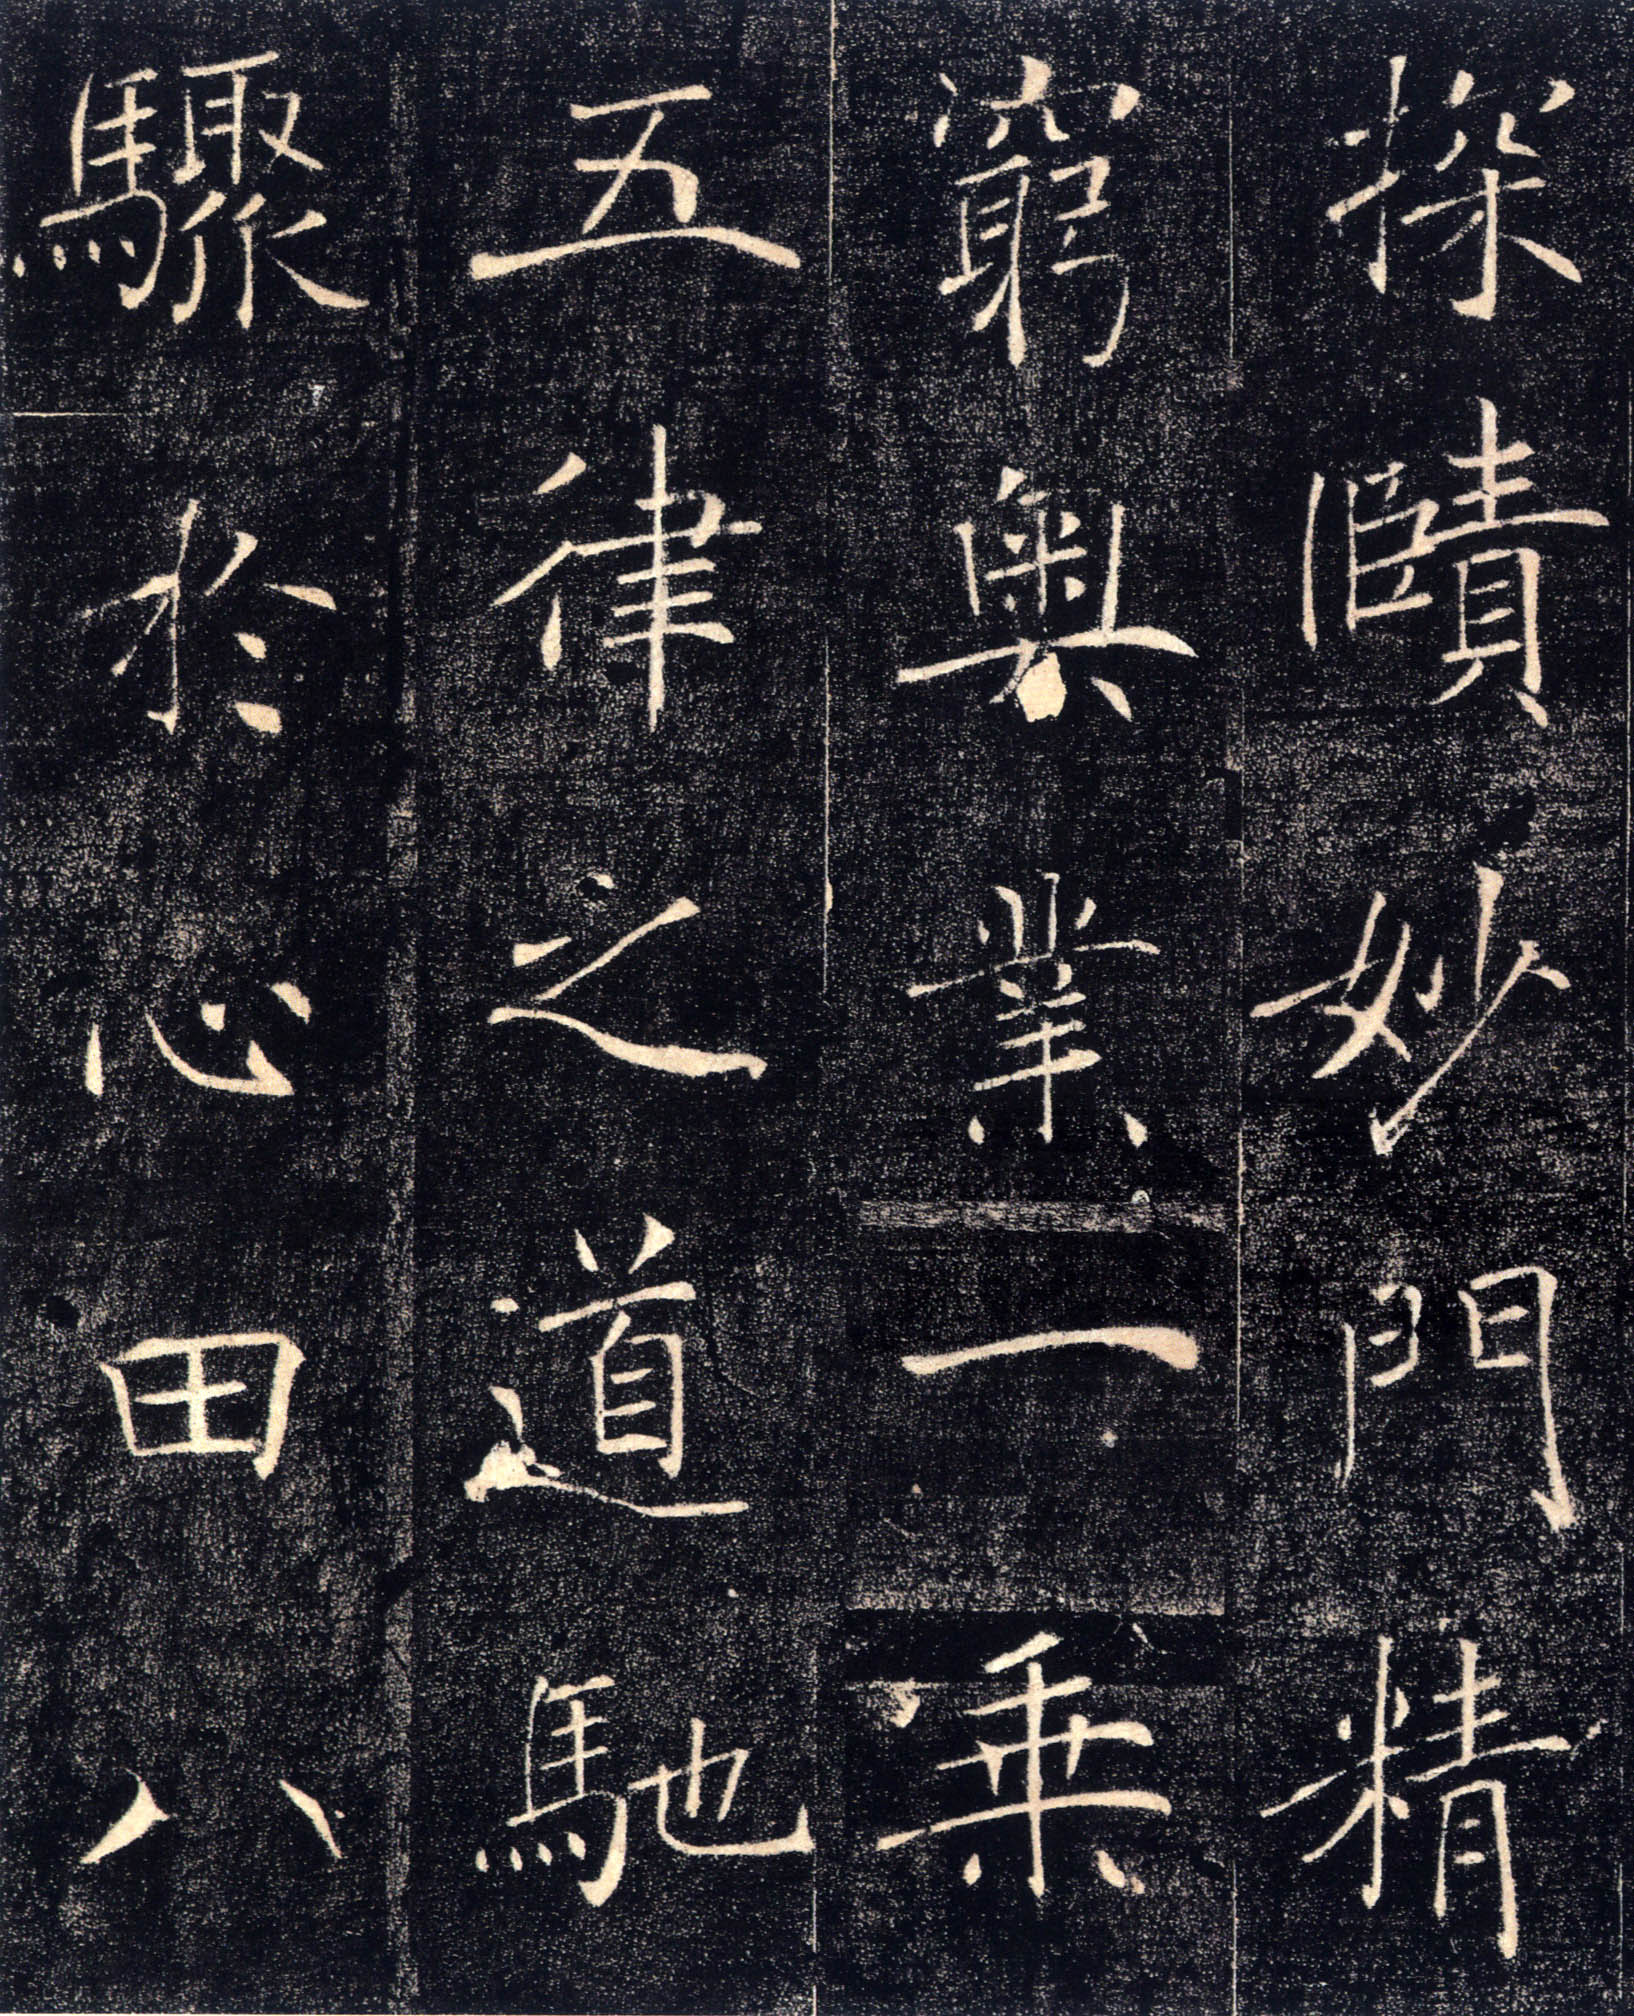 探賾妙門精
窮奧業一乘
五律之道馳
驟於心田八